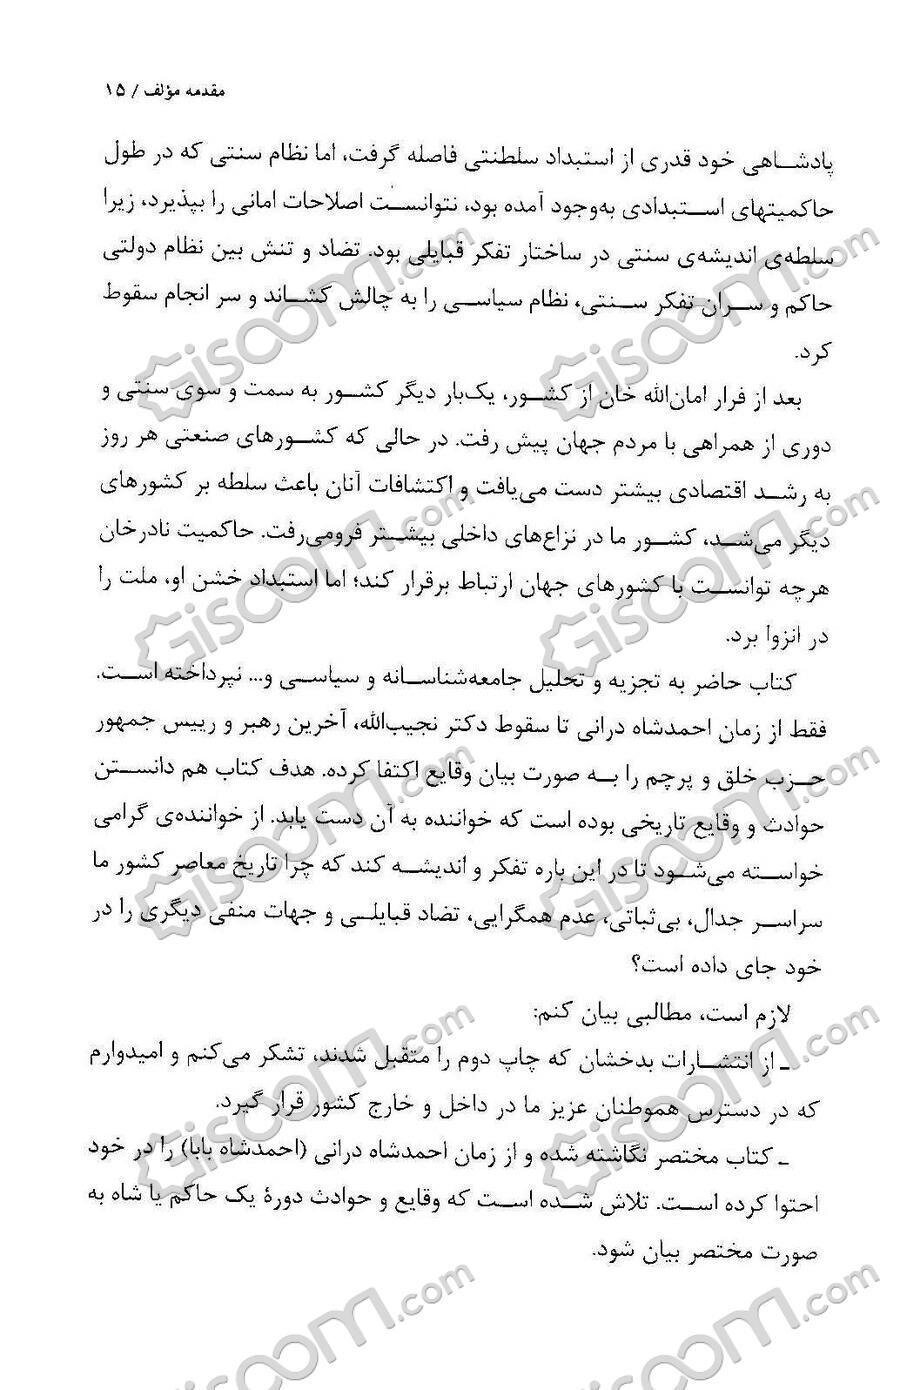 مقدمه مؤلف / ۱۵
پادشاهی خود قدری از استبداد سلطنتی فاصله گرفت، اما نظام سنتی که در طول
حاکمیتهای استبدادی به‌وجود آمده بود، نتوانست اصلاحات امانی را بپذیرد، زیرا
سلطه‌ی اندیشه‌ی سنتی در ساختار تفکر قبایلی بود. تضاد و تنش بین نظام دولتی
حاکم و سران تفکر سنتی، نظام سیاسی را به چالش کشاند و سر انجام سقوط
کرد.
بعد از فرار امان‌الله خان از کشور، یک‌بار دیگر کشور به سمت و سوی سنتی و
دوری از همراهی با مردم جهان پیش رفت. در حالی که کشورهای صنعتی هر روز
به رشد اقتصادی بیشتر دست می‌یافت و اکتشافات آنان باعث سلطه بر کشورهای
دیگر می‌شد، کشور ما در نزاع‌های داخلی بیشتر فرومی‌رفت. حاکمیت نادرخان
هرچه توانست با کشورهای جهان ارتباط برقرار کند؛ اما استبداد خشن او، ملت را
در انزوا برد.
کتاب حاضر به تجزیه و تحلیل جامعه‌شناسانه و سیاسی و... نپرداخته است.
فقط از زمان احمدشاه درانی تا سقوط دکتر نجیب‌الله، آخرین رهبر و رییس جمهور
حزب خلق و پرچم را به صورت بیان وقایع اکتفا کرده. هدف کتاب هم دانستن
حوادث و وقایع تاریخی بوده است که خواننده به آن دست یابد. از خواننده‌ی گرامی
خواسته می‌شود تا در این باره تفکر و اندیشه کند که چرا تاریخ معاصر کشور ما
سراسر جدال، بی‌ثباتی، عدم همگرایی، تضاد قبایلی و جهات منفی دیگری را در
خود جای داده است؟
لازم است، مطالبی بیان کنم:
ـ از انتشارات بدخشان که چاپ دوم را متقبل شدند، تشکر می‌کنم و امیدوارم
که در دسترس هموطنان عزیز ما در داخل و خارج کشور قرار گیرد.
ـ کتاب مختصر نگاشته شده و از زمان احمدشاه درانی (احمدشاه بابا) را در خود
احتوا کرده است. تلاش شده است که وقایع و حوادث دورهٔ یک حاکم یا شاه به
صورت مختصر بیان شود.
Giscoom.com
Giscoom.com
Giscoom.com
Giscoom.com
Giscoom.com
Giscoom.com
Giscoom.com
Giscoom.com
Giscoom.com
Giscoom.com